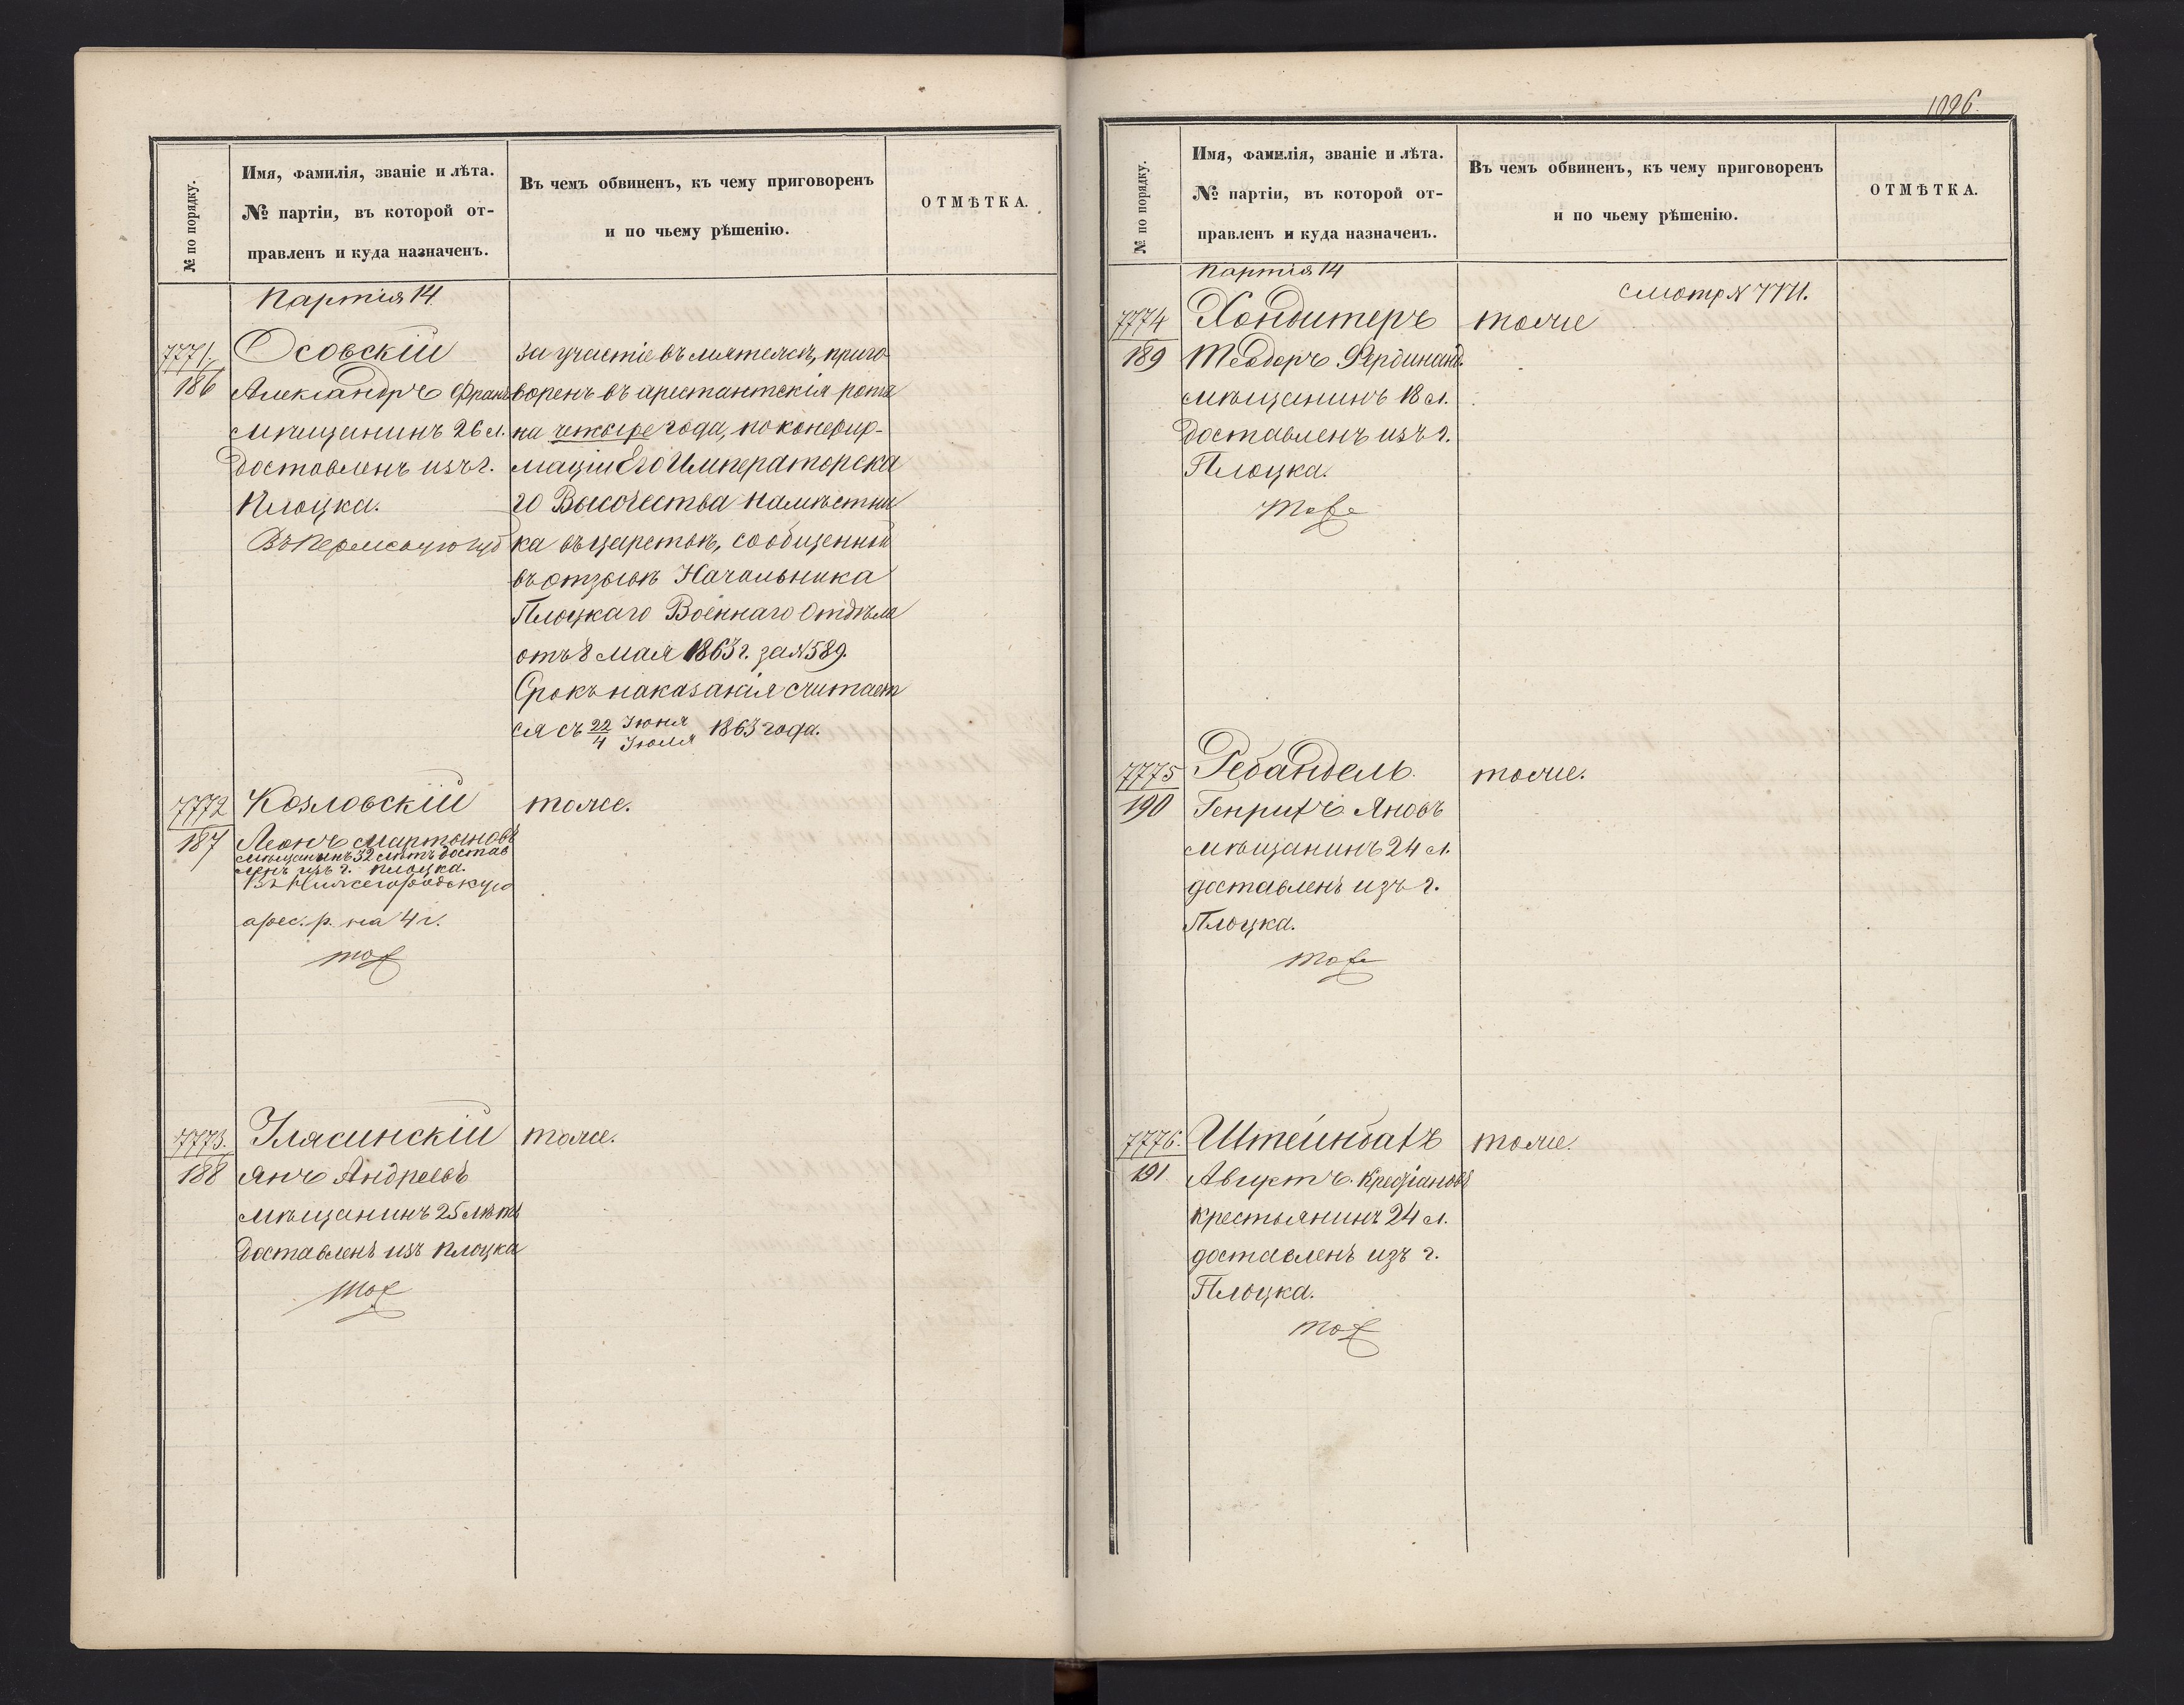 № по порядку.
Имя, фамилія, званіе и лѣта.
№ партіи, въ которой от-
правленъ и куда назначенъ.
Въ чемъ обвиненъ, къ чему приговоренъ
и по чьему рѣшенію.
ОТМѢТКА.
Партія 14.
7771.
186
Осовскій
Александръ Франц
мѣщанинъ 26 л.
доставленъ изъ г.
Плоцка.
Въ Пермскую губ
за участіе въ мятежѣ, приго-
воренъ въ арестантскія роты
на четыре года, по конфир-
маціи Его Императорска
го Высочества Намѣстни
ка въ царствѣ, сообщенной
въ отзывѣ Начальника
Плоцкаго Военнаго Отдѣла
отъ 8 Мая 1863 г. за № 589.
Срокъ наказанія считает
ся съ 22/4 Іюня/Іюля 1863 года.
7772
187
Козловскій
Леонъ Мартыновъ
мѣщанинъ 32 лѣтъ достав
ленъ изъ г. Плоцка.
Въ Нижегородскую
арес. р. на 4 г.
тож
тоже.
7773.
188
Глясинскій
Янъ Андреевъ
мѣщанинъ 25 лѣтъ
доставленъ изъ Плоцка
тож
тоже.
1096.
№ по порядку.
Имя, фамилія, званіе и лѣта.
№ партіи, въ которой от-
правленъ и куда назначенъ.
Въ чемъ обвиненъ, къ чему приговоренъ
и по чьему рѣшенію.
ОТМѢТКА.
Партія 14
смотр № 7771.
7774
189
Хондитеръ
Теодоръ Фердинанд.
мѣщанинъ 18 л.
доставленъ изъ г.
Плоцка.
тоже
тоже
7775
190
Ребандель.
Генрихъ Яновъ
мѣщанинъ 24 л.
доставленъ изъ г.
Плоцка.
тоже
тоже.
7776.
191.
Штейнбахъ
Августъ
крестьянинъ 24 л.
доставленъ изъ г.
Плоцка.
тож
тоже.